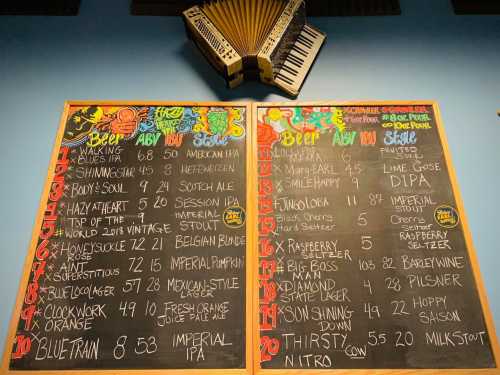 Beer ABV IBU Style
1 x WALKING BLUES IPA 6.8 50 AMERICAN IPA
2 x SHINING STAR 4.5 8 HEFEWEIZEN
3 x BODY & SOUL 9 24 SCOTCH ALE
4 x HAZY AT HEART 5 20 SESSION IPA
5 TOP OF THE 9 IMPERIAL
# WORLD 2018 VINTAGE STOUT
6 x HONEYSUCKLE ROSE 7.2 21 BELGIAN BLONDE
7 x AINT SUPERSTITIOUS 7.2 15 IMPERIAL PUMPKIN
8 x BLUE LOCO LAGER 5.7 28 MEXICAN-STYLE LAGER
9 x CLOCKWORK ORANGE 4.9 10 FRESH ORANGE JUICE PALE ALE
10 BLUE TRAIN 8 53 IMPERIAL IPA
GROWLER
# 8 OZ. POUR
∞ 10 OZ. POUR
Beer ABV IBU Style
6 FRUITED
x MARY EARL 4.5 LIME GOSE
x SMILE HAPPY 9 DIPA
JINGO LOBA 11 87 IMPERIAL STOUT
Black Cherry Hard Seltzer 5 Cherry Seltzer
X RASPBERRY SELTZER 5 RASPBERRY SELTZER
17 # BIG BOSS MAN 10.3 82 BARLEYWINE
18 DIAMOND STATE LAGER 4 28 PILSNER
19 x SUN SHINING DOWN 4.9 22 HOPPY SAISON
20 THIRSTY COW NITRO 5.5 20 MILK STOUT